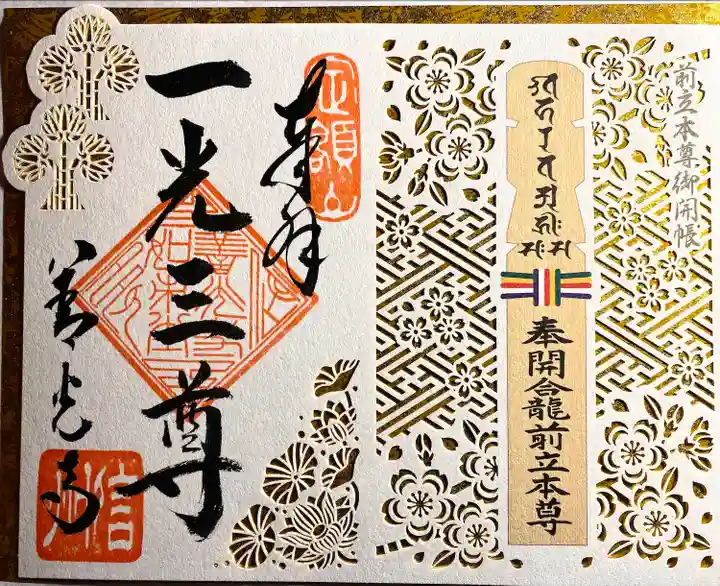 前立本尊御開帳
奉開龕前立本尊
定額山
奉拝
一光三尊
善光寺
信州